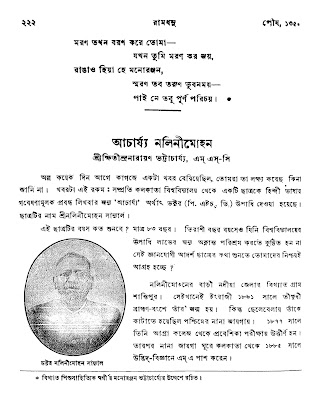 ২২২
রামধনু
পৌষ, ১৩৫০
মরণ তখন বরণ করে তোমা—
যখন তুমি মরণ কর জয়,
রাঙাও হিয়া হে মনোরঞ্জন,
স্মরণ তব তরুণ ভুবনময়—
পাই নে তবু পূর্ণ পরিচয়। *
আচার্য্য নলিনীমোহন
শ্রীক্ষিতীন্দ্রনারায়ণ ভট্টাচার্য্য, এম্ এস্-সি
অল্প কয়েক দিন আগে কাগজে একটা খবর বেরিয়েছিল, তোমরা তা লক্ষ্য করেছ কিনা
জানি না। খবরটা এই রকম: সম্প্রতি কলকাতা বিশ্ববিদ্যালয় থেকে একটি ছাত্রকে হিন্দী ভাষায়
গবেষণামূলক প্রবন্ধ লিখবার জন্য 'আচার্য্য' অর্থাৎ ডক্টর (পি. এইচ্. ডি.) উপাধি দেওয়া হয়েছে।
ছাত্রটির নাম শ্রীনলিনীমোহন সান্যাল।
এই ছাত্রটির বয়স কত শুনবে? মাত্র ৮৩ বছর। তিরাশী বছর বয়সেও যিনি বিশ্ববিদ্যালয়ের
উপাধি লাভের জন্য অক্লান্ত পরিশ্রম করতে কুণ্ঠিত হন না
সেই জ্ঞানযোগী আদর্শ ছাত্রের কথা শুনতে তোমাদের নিশ্চয়ই
আগ্রহ হচ্ছে?
নলিনীমোহনের বাড়ী নদীয়া জেলার বিখ্যাত গ্রাম
শান্তিপুর। সেইখানেই ইংরাজী ১৮৬১ সালে তাঁতুরী
ব্রাহ্মণ-বংশে তাঁর জন্ম হয়। কিন্তু ছেলেবেলায় তাঁকে
কাটাতে হয়েছিল পশ্চিমের নানা জায়গায়। ১৮৭৭ সালে
তিনি আগ্রা কলেজ থেকে প্রবেশিকা পরীক্ষায় উত্তীর্ণ হন।
তারপর নানা জায়গা ঘুরে কলকাতা থেকে ১৮৮৪ সালে
উদ্ভিদ্-বিজ্ঞানে এম্ এ পাশ করেন।
ডক্টর নলিনীমোহন সান্যাল
* বিখ্যাত শিশুসাহিত্যিক স্বর্গীয় মনোরঞ্জন ভট্টাচার্য্যের উদ্দেশে রচিত।